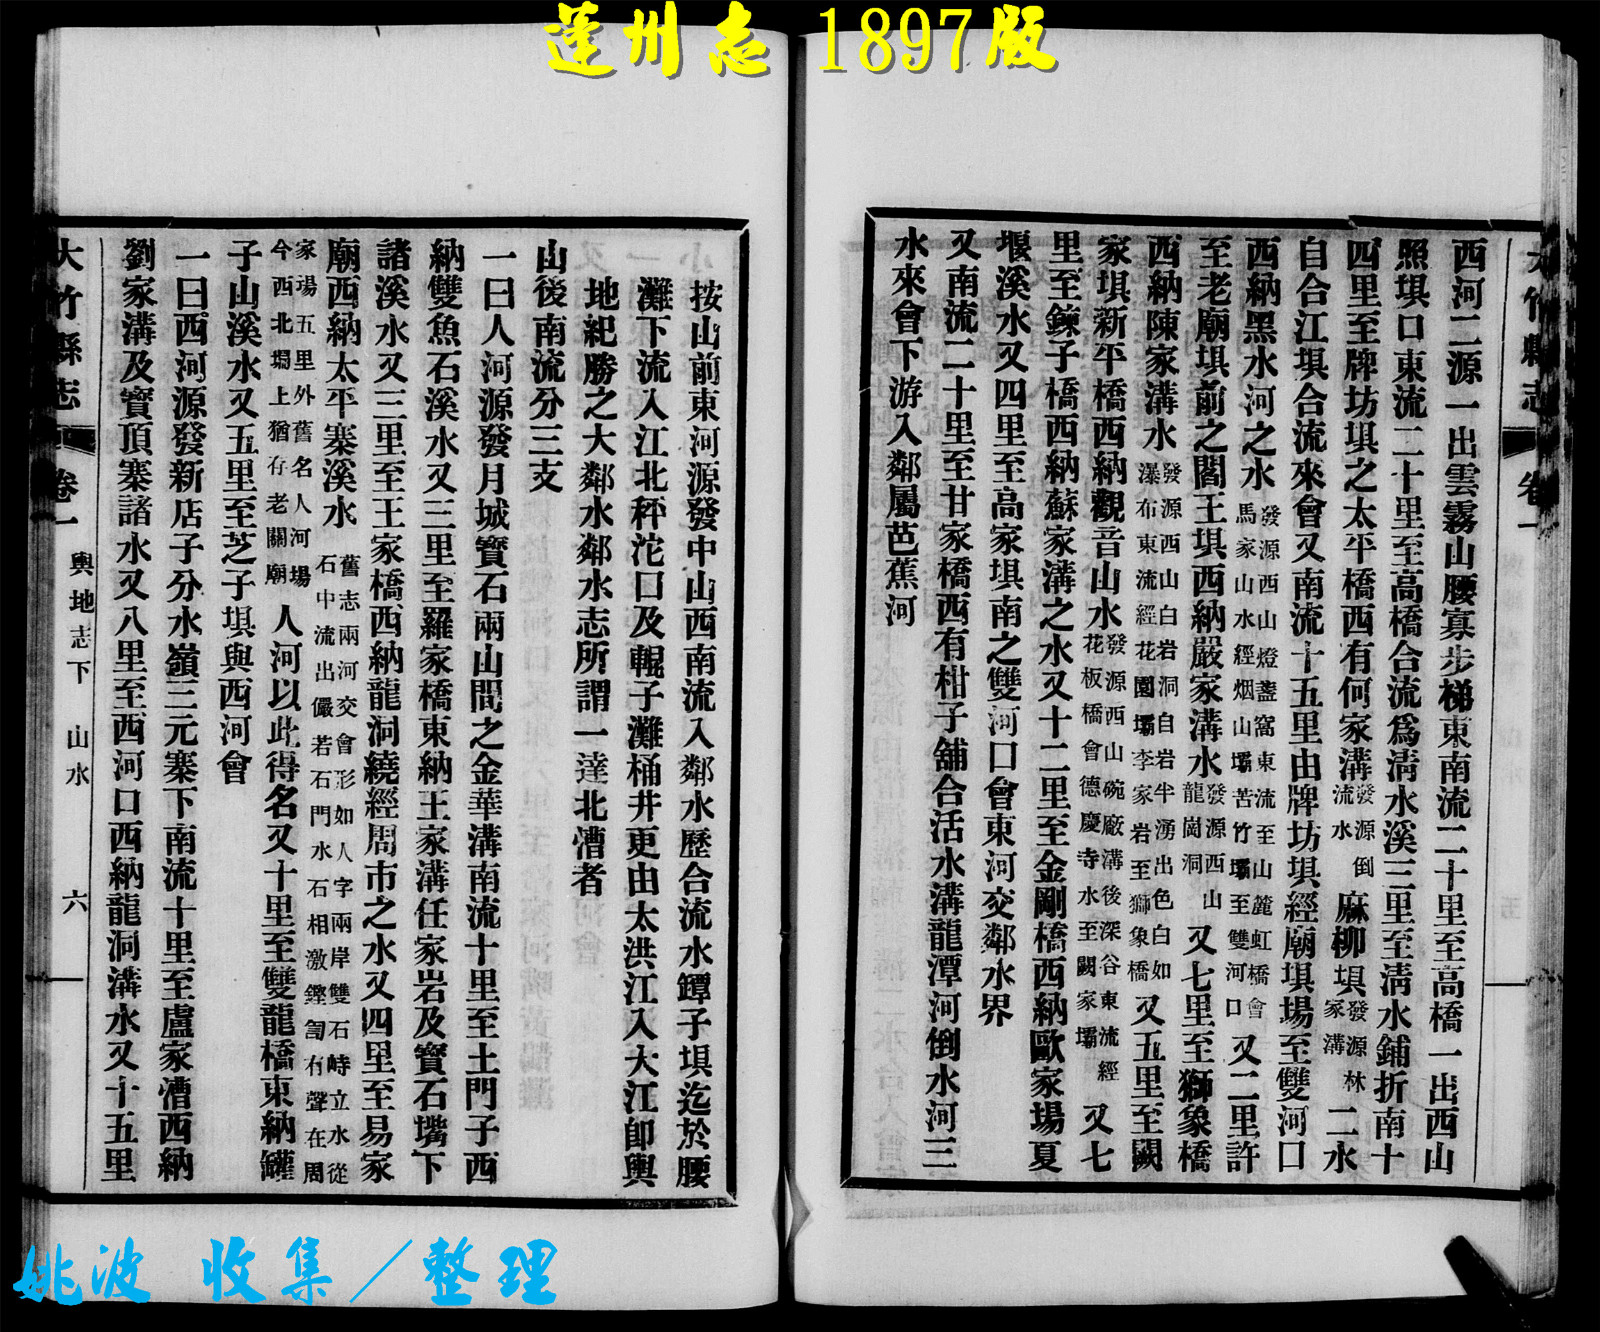 蓬州志 1897版
大竹縣志 卷一
西河二源一出雲霧山腰寡步梯東南流二十里至高橋一出西山
照埧口東流二十里至高橋合流爲清水溪三里至清水鋪折南十
四里至牌坊埧之太平橋西有何家溝發源倒流水麻柳埧發源林家溝二水
自合江埧合流來會又南流十五里由牌坊埧經廟埧場至雙河口
西納黑水河之水發源西山燈盞窩東流至山麓虹橋會馬家山水經烟山壩苦竹壩至雙河口又二里許
至老廟埧前之閻王埧西納嚴家溝水發源西山龍崗洞又七里至獅象橋
西納陳家溝水發源西山白岩洞自岩半湧出色白如瀑布東流經花園壩李家岩至獅象橋又五里至闕
家埧新平橋西納觀音山水發源西山碗廠溝後深谷東流經花板橋會德慶寺水至闕家壩又七
里至鍊子橋西納蘇家溝之水又十二里至金剛橋西納歐家場夏
堰溪水又四里至高家埧南之雙河口會東河交鄰水界
又南流二十里至甘家橋西有柑子舖合活水溝龍潭河倒水河三
水來會下游入鄰屬芭蕉河
按山前東河源發中山西南流入鄰水歷合流水鐔子埧迄於腰
灘下流入江北秤沱口及輥子灘桶井更由太洪江入大江卽輿
地紀勝之大鄰水鄰水志所謂一達北漕者
山後南流分三支
一曰人河源發月城寶石兩山間之金華溝南流十里至土門子西
納雙魚石溪水又三里至羅家橋東納王家溝任家岩及寶石嘴下
諸溪水又三里至王家橋西納龍洞繞經周市之水又四里至易家
廟西納太平寨溪水舊志兩河交會形如人字兩岸雙石峙立水從石中流出儼若石門水石相激鏗訇有聲在周
家場五里外舊名人河場今西北壩上猶存老關廟人河以此得名又十里至雙龍橋東納罐
子山溪水又五里至芝子埧與西河會
一曰西河源發新店子分水嶺三元寨下南流十里至盧家漕西納
劉家溝及寶頂寨諸水又八里至西河口西納龍洞溝水又十五里
大竹縣志 卷一 輿地志下 山水 六
姚波 收集／整理